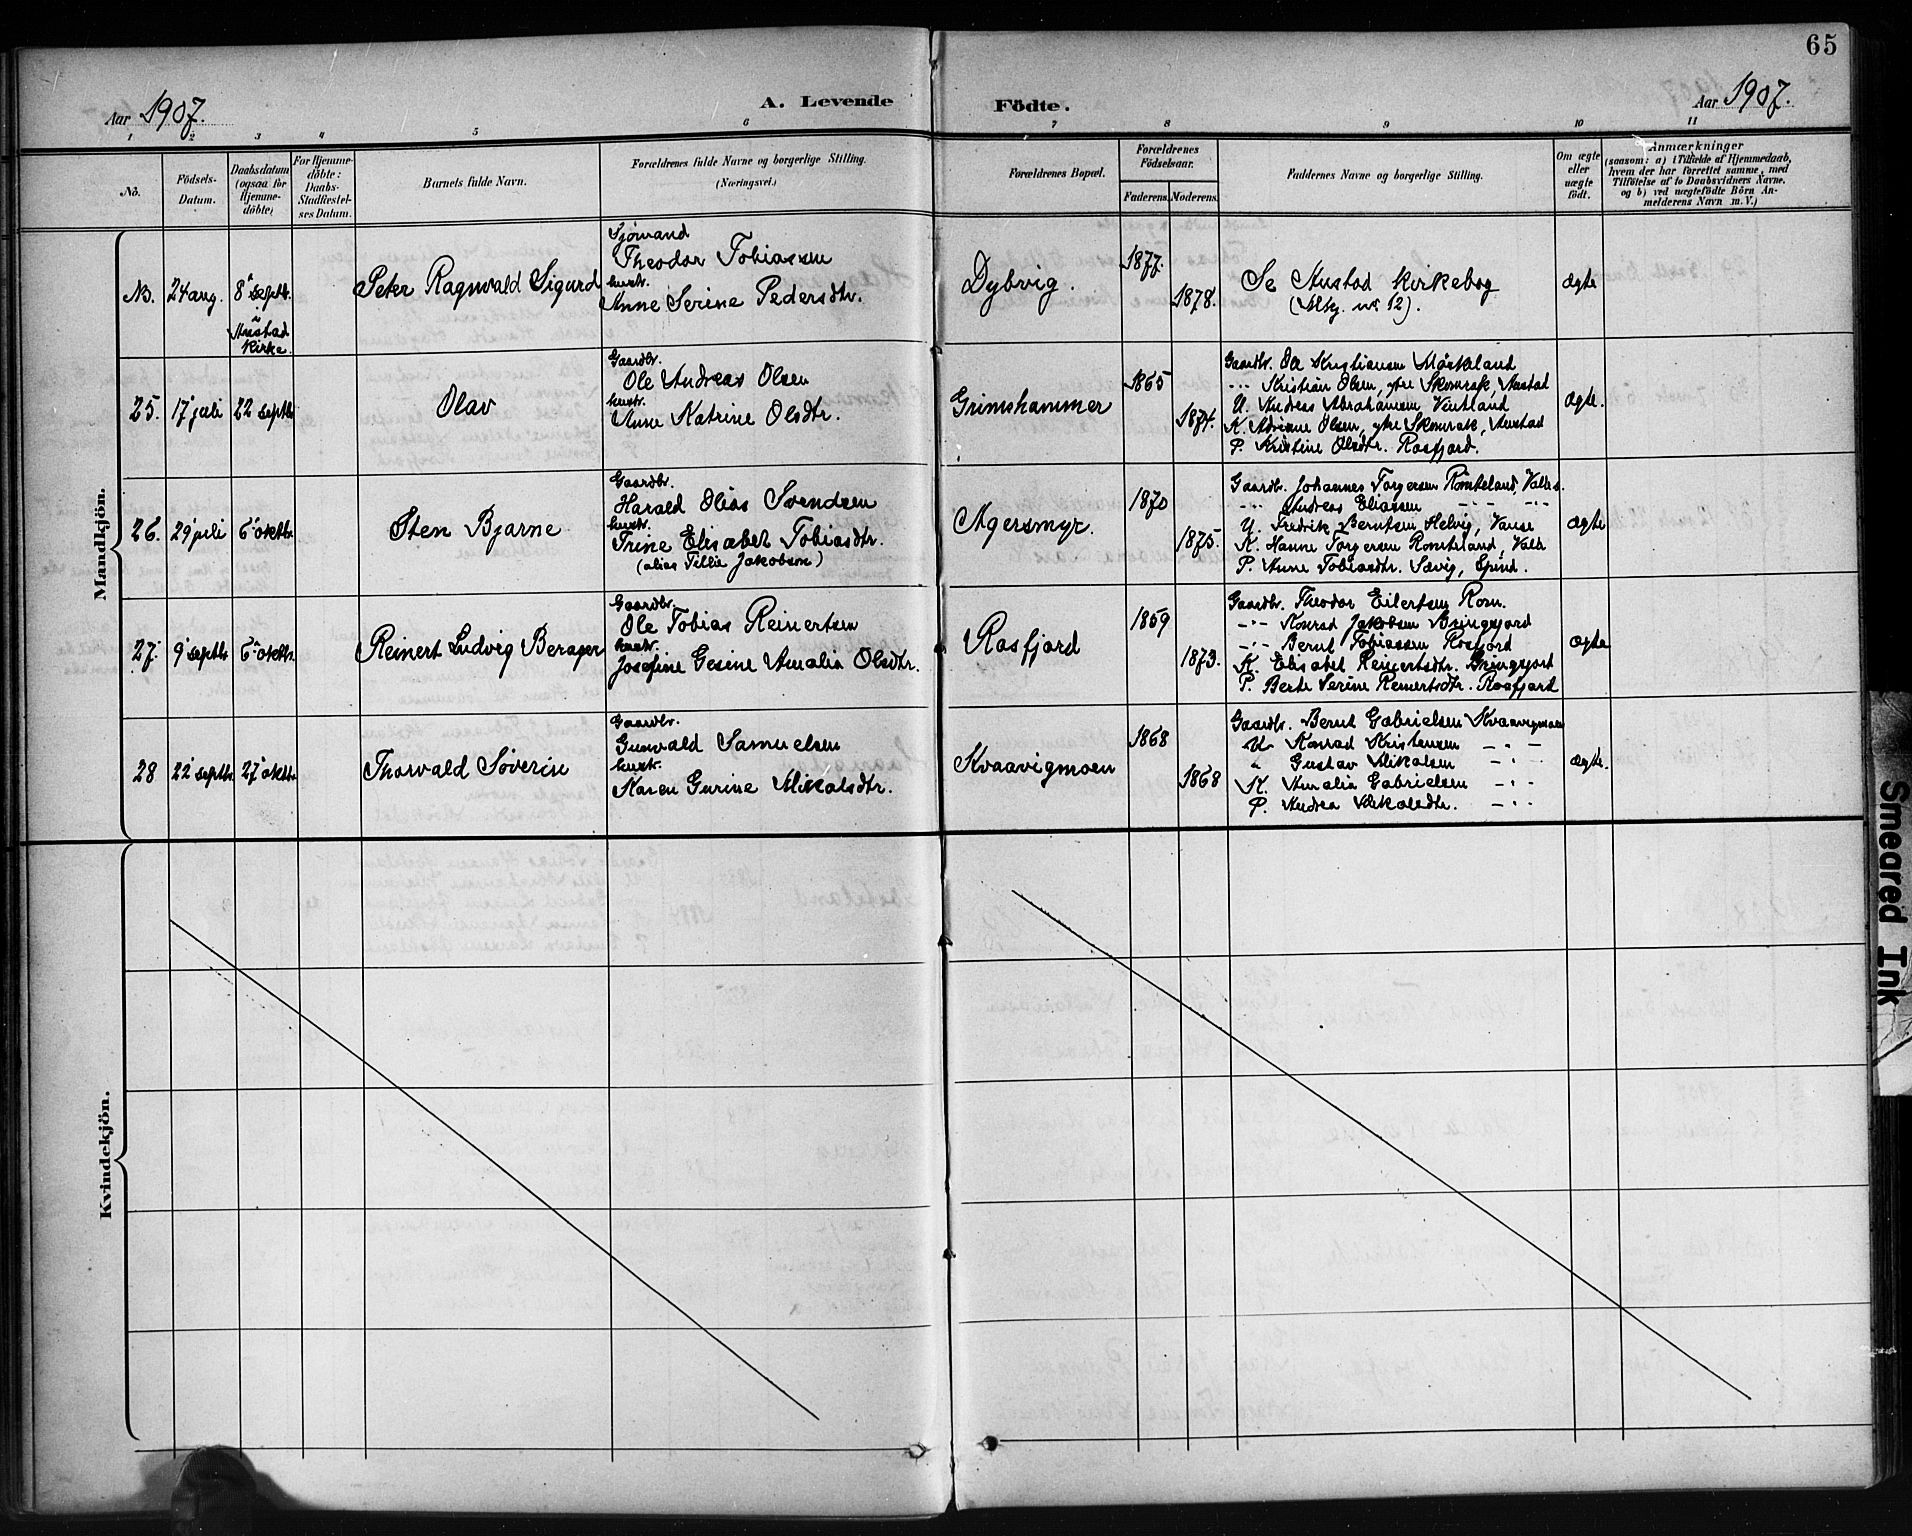 65
Aar 1907.
A. Levende Födte.
Aar 1907.
1 2 3 4 5 6 7 8 9 10 11
No.
Födsels-
Datum.
Daabsdatum
(ogsaa for
Hjemme-
döbte)
For Hjemme-
döbte:
Daabs-
Stadfæstel-
ses Datum.
Barnets fulde Navn.
Forældrenes fulde Navne og borgerlige Stilling.
(Næringsvei.)
Forældrenes Bopæl.
Forældrenes
Födselsaar.
Faderens.
Moderens.
Faddernes Navne og borgerlige Stilling.
Om ægte
eller
uægte
födt.
Anmærkninger
(saasom: a) i Tilfælde af Hjemmedaab,
hvem der har forrettet samme, med
Tilföielse af to Daabsvidners Navne,
og b) ved uægtefödte Börn An-
melderens Navn m. V.)
Mandkjön.
NB.
24 aug.
8 septb.
i
Austad
Kirke.
Peter Ragnvald Sigurd
Sjømand
Theodor Tobiassen
hustr.
Anne Serine Pedersdtr.
Dybvig.
1877.
1878.
Se Austad kirkebog
(Mkj. nr 12).
Ægte
25.
17 juli
22 septb
Olav
Gaardbr.
Ole Andreas Olsen
hustr.
Anne Katrine Olsdtr.
Grimshammer
1865
1874.
Gaardbr. Ole Kristiansen Møskeland
-"- Kristian Olsen, ytre Skomrak, Austad
U. Andreas Abrahamsen Vintland
K. Adriane Olsen, ytre Skomrak, Austad
P. Kristine Olsdtr. Rosfjord.
Ægte.
26.
29 juli
6 oktbr
Sten Bjarne
Gaardbr.
Harald Olias Svendsen
hustr.
Trine Elisabet Tobiasdtr.
(alias Tillie Jakobsen)
Agersmyr.
1870
1875.
Gaardbr. Johannes Torgersen Røniteland, Valle.
-"- Andreas Eliassen -"- -"-
U. Fredrik Berntsen Helvig, Vanse
K. Hanne Torgersen Rømteland, Valle
P. Anne Tobiasdtr. Sævig, Spind.
Ægte
27.
9 septb
6 oktb.
Reinert Ludvig Berager
Gaardbr.
Ole Tobias Reinertsen
hustr.
Josefine Gesine Amalia Olsdtr.
Rosfjord
1859
1873.
Gaardbr. Theodor Eilertsen Rom.
-"- Konrad Jakobsen Bringsjord
-"- Bernt Tobiassen Rosfjord
K. Elisabet Reinertsdtr. Bringsjord
P. Berte Serine Reinertsdtr. Rosfjord
Ægte
28
22 septb.
27 oktb.
Thorvald Söverin
Gaardbr.
Gunvald Samuelsen
hustr.
Karen Gurine Mikalsdtr.
Kvaavigmoen
1868
1868
Gaardbr. Bernt Gabrielsen Kvaavigmoen
U. Konrad Kristensen -"-
" Gustav Mikalsen -"-
K. Amalia Gabrielsen -"-
P. Andrea Mikalsdtr. -"-
Ægte.
Kvindekjön.
Smeared Ink